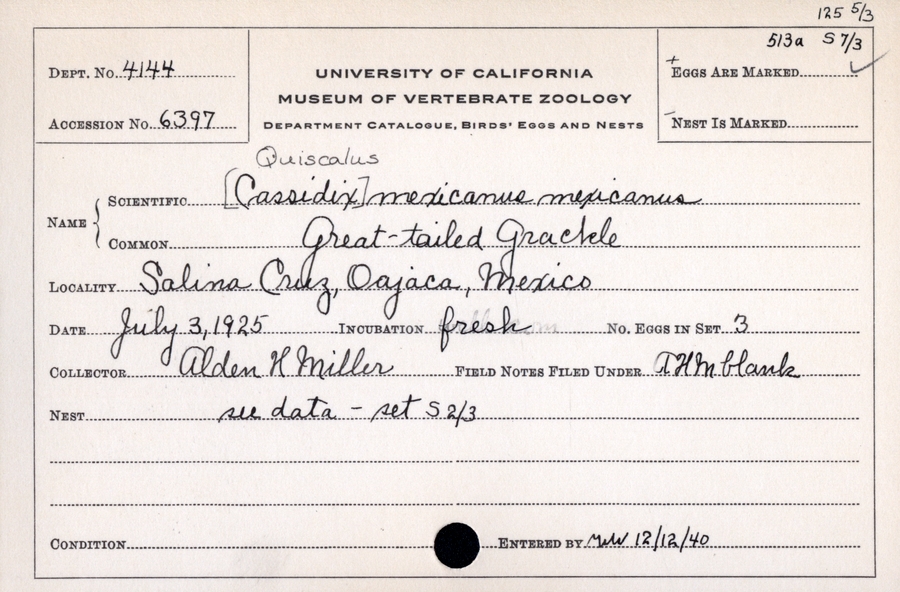 125 5/3
513a S 7/3
DEPT. NO. 4144
UNIVERSITY OF CALIFORNIA
+ EGGS ARE MARKED ✓
MUSEUM OF VERTEBRATE ZOOLOGY
ACCESSION NO. 6397
DEPARTMENT CATALOGUE, BIRDS' EGGS AND NESTS
- NEST IS MARKED
Quiscalus
NAME { SCIENTIFIC [Cassidix] mexicanus mexicanus
COMMON Great-tailed Grackle
LOCALITY Salina Cruz, Oajaca, Mexico
DATE July 3, 1925 INCUBATION fresh NO. EGGS IN SET 3
COLLECTOR Alden H Miller FIELD NOTES FILED UNDER AHM blank
NEST see data - set S 2/3
CONDITION ENTERED BY 12/12/40